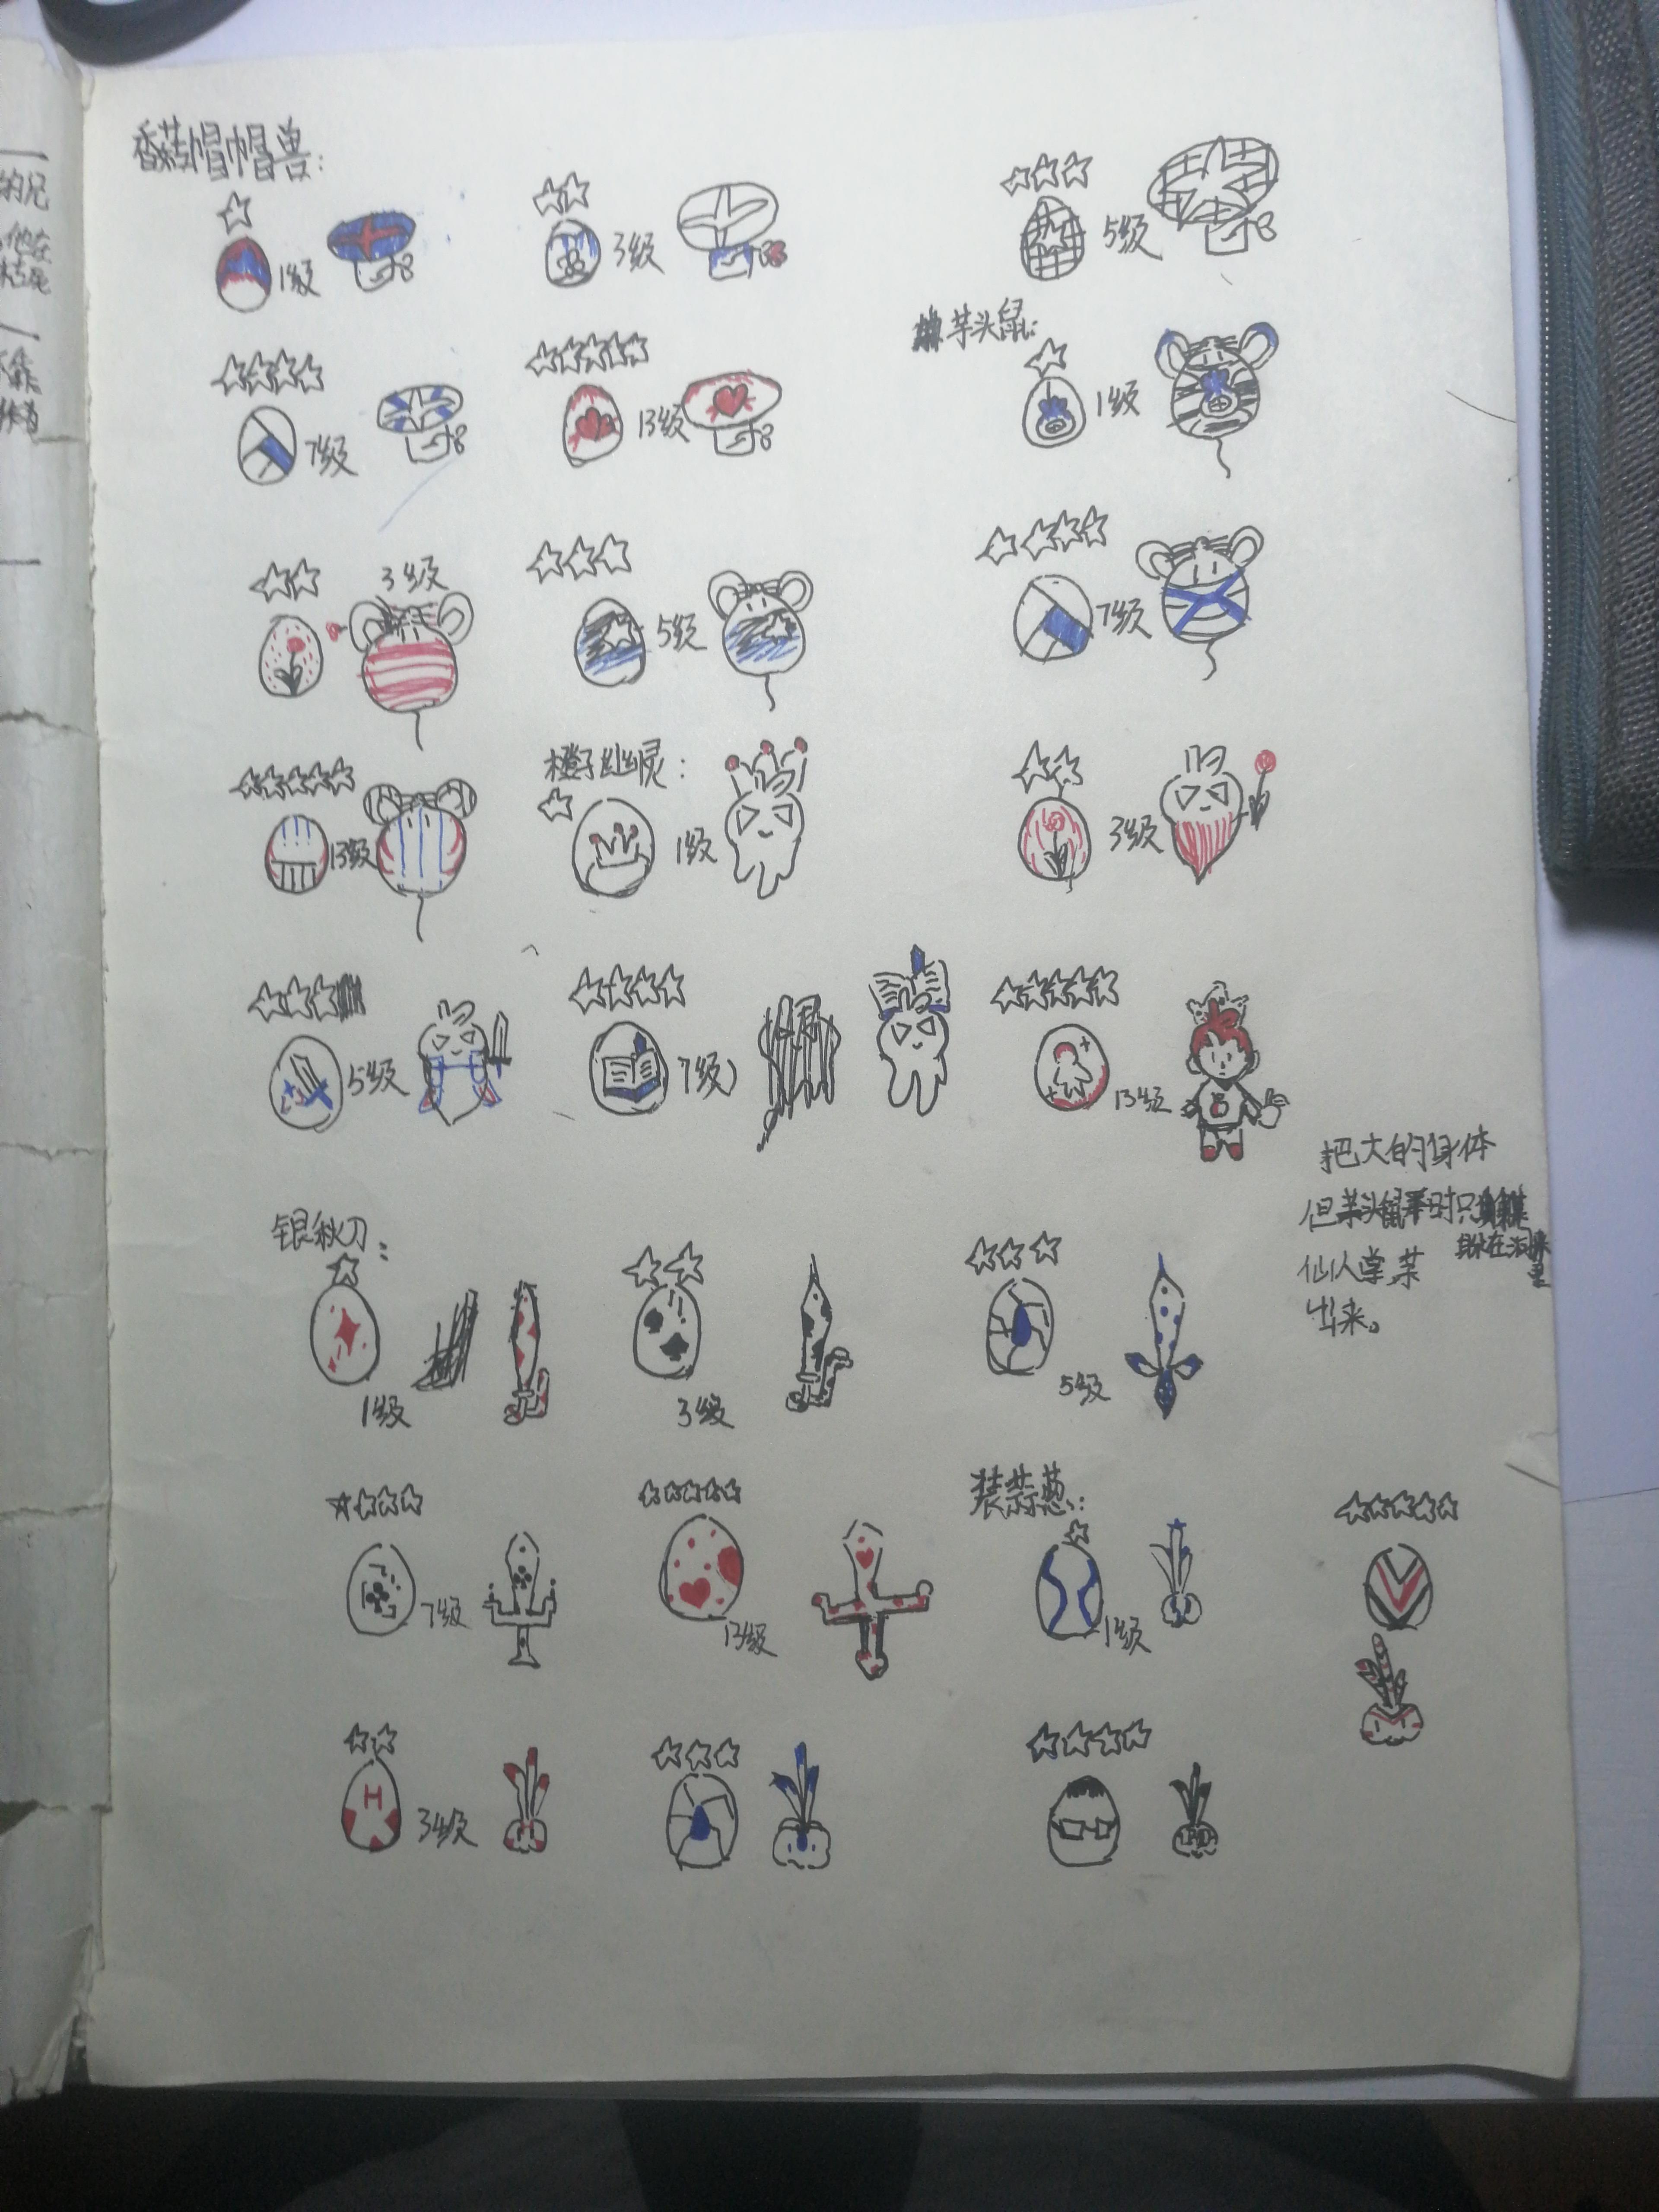 香菇帽帽兽:
1级
3级
5级
芋头鼠:
7级
13级
1级
3级
5级
7级
橙子幽灵:
13级
1级
3级
5级
7级
13级
把大的身体
但芋头鼠平时只
身体在洞
里
仙人掌菜
出来。
银秋刀:
1级
3级
5级
装蒜葱:
7级
13级
1级
H
3级